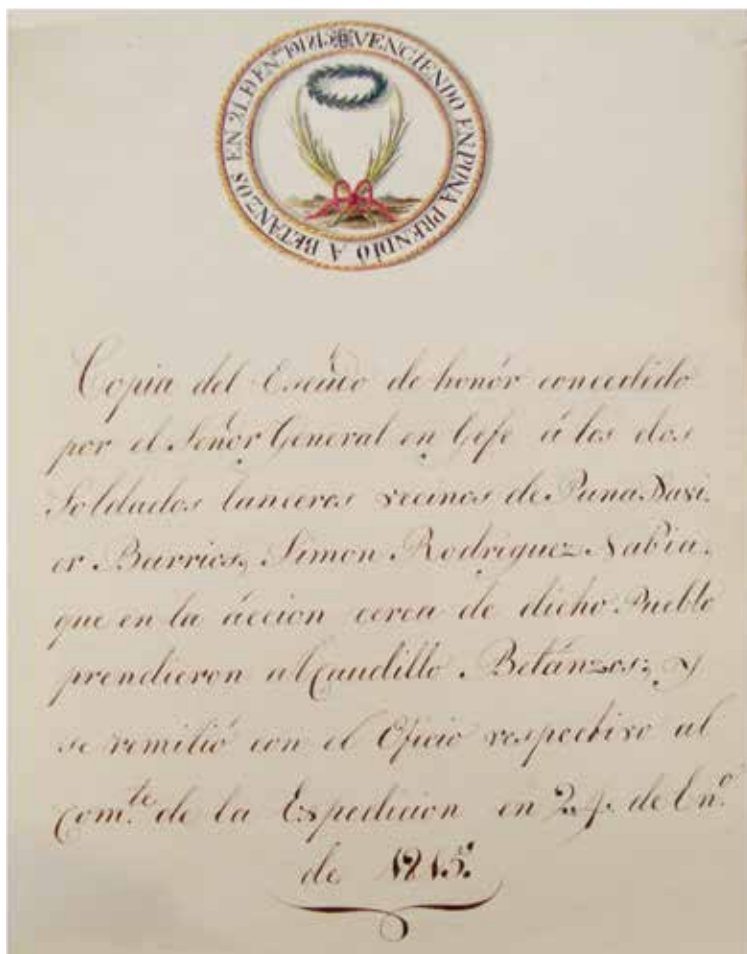 VENCIENDO EN PUNA PRENDIÓ A BETANZOS EN 21. D EN.º
Copia del Escudo de honór concedido
por el Señor General en Gefe á los dos
Soldados lanceros vecinos de Puna Xavi.
er Barrios, Simon Rodriguez Nabia,
que en la áccion cerca de dicho Pueblo
prendieron al Caudillo Betánzos; y
se remitió con el Oficio respectivo al
Com.te de la Expedicion en de En.º
de 1815.